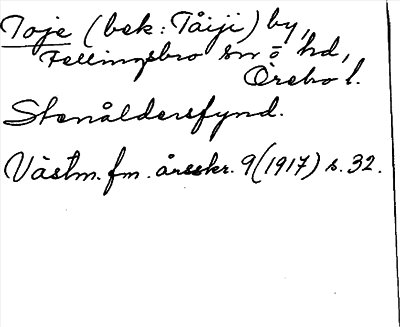 Toje (bek: Tåiji) by,
Fellingsbro sn o hd,
Örebro l.
Stenåldersfynd.
Västm. fm. årsskr. 9 (1917) s. 32.